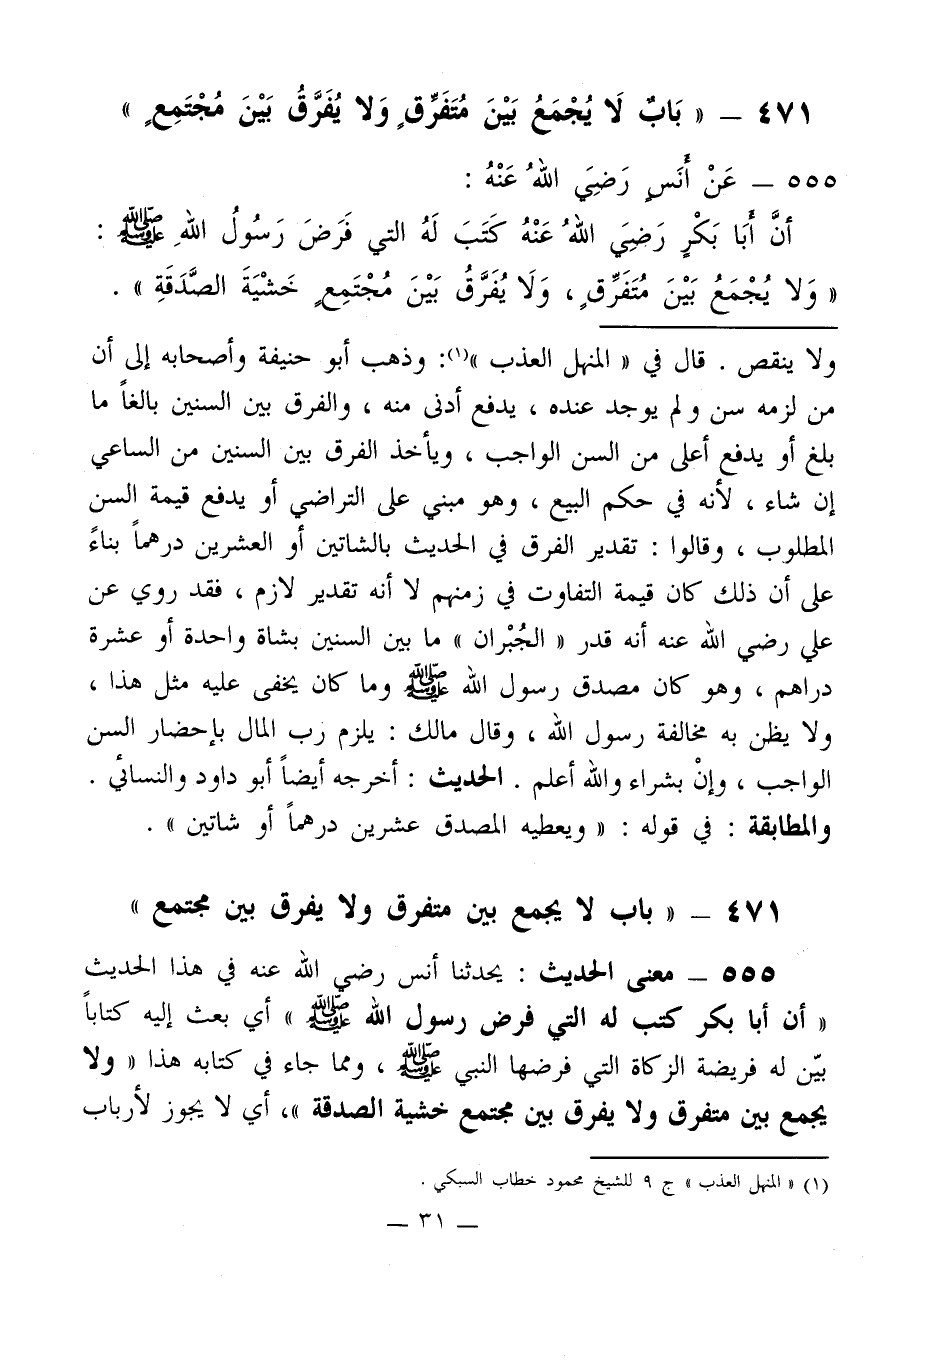 ٤٧١ ــ « بَابٌ لَا يُجْمَعُ بَيْنَ مُتَفَرِّقٍ وَلا يُفَرَّقُ بَيْنَ مُجْتَمِعٍ »
٥٥٥ ــ عَنْ أَنَسٍ رَضِيَ اللهُ عَنْهُ :
أَنَّ أَبَا بَكْرٍ رَضِيَ اللهُ عَنْهُ كَتَبَ لَهُ التي فَرَضَ رَسُولُ اللهِ ﷺ :
« وَلا يُجْمَعُ بَيْنَ مُتَفَرِّقٍ ، وَلَا يُفَرَّقُ بَيْنَ مُجْتَمِعٍ خَشْيَةَ الصَّدَقَةِ » .
ولا ينقص . قال في « المنهل العذب »(١): وذهب أبو حنيفة وأصحابه إلى أن
من لزمه سن ولم يوجد عنده ، يدفع أدنى منه ، والفرق بين السنين بالغاً ما
بلغ أو يدفع أعلى من السن الواجب ، ويأخذ الفرق بين السنين من الساعي
إن شاء ، لأنه في حكم البيع ، وهو مبني على التراضي أو يدفع قيمة السن
المطلوب ، وقالوا : تقدير الفرق في الحديث بالشاتين أو العشرين درهماً بناءً
على أن ذلك كان قيمة التفاوت في زمنهم لا أنه تقدير لازم ، فقد روي عن
علي رضي الله عنه أنه قدر « الجُبْران » ما بين السنين بشاة واحدة أو عشرة
دراهم ، وهو كان مصدق رسول الله ﷺ وما كان يخفى عليه مثل هذا ،
ولا يظن به مخالفة رسول الله ، وقال مالك : يلزم رب المال بإحضار السن
الواجب ، وإنْ بشراء والله أعلم . الحديث : أخرجه أيضاً أبو داود والنسائي .
والمطابقة : في قوله : « ويعطيه المصدق عشرين درهماً أو شاتين » .
٤٧١ ــ « باب لا يجمع بين متفرق ولا يفرق بين مجتمع »
٥٥٥ ــ معنى الحديث : يحدثنا أنس رضي الله عنه في هذا الحديث
« أن أبا بكر كتب له التي فرض رسول الله ﷺ » أي بعث إليه كتاباً
بيّن له فريضة الزكاة التي فرضها النبي ﷺ ، ومما جاء في كتابه هذا « ولا
يجمع بين متفرق ولا يفرق بين مجتمع خشية الصدقة »، أي لا يجوز لأرباب
(١) « المنهل العذب » ج ٩ للشيخ محمود خطاب السبكي .
ــ ٣١ ــ